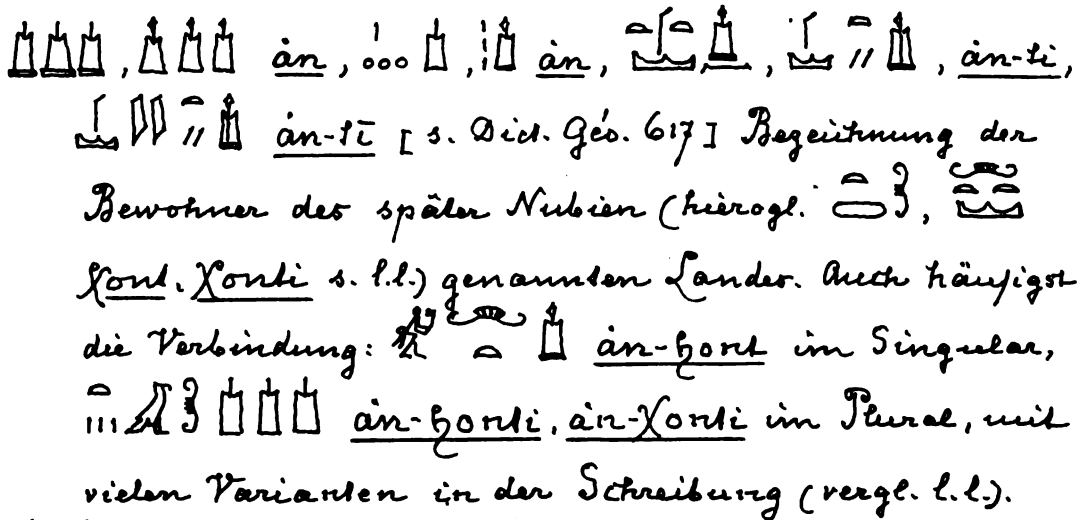 𓉺𓉺𓉺, 𓉺𓉺𓉺 ȧn, 𓏤 ooo 𓉺, 𓏪𓉺 ȧn, ȧn-ti,
ȧn-tī [s. Dict. Géo. 617] Bezeichnung der
Bewohner des später Nubien (hierogl.
Χont, Χonti s. l.l.) genannten Landes. Auch häufigst
die Verbindung: ȧn-ḫont im Singular,
ȧn-ḫonti, ȧn-Χonti im Plural, mit
vielen Varianten in der Schreibung (vergl. l.l.).